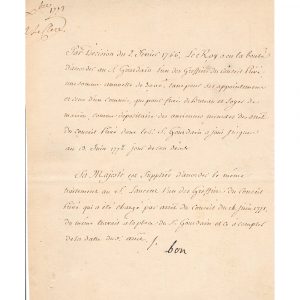 Par Decision du 2. Fevrier 1766, Le Roy a eu la bonté
d'accorder au S. Gourdain l'un des Greffiers du Conseil Privé
une somme annuelle de pour ses appointemens
et ceux d'un commis, que pour frais de Bureau et Loyer de
maison, comme depositaire des anciennes minutes des arrêts du
Conseil Privé dont led. S. Gourdain a joui jusques
au 13. Juin 1772. jour de son decès.
Sa Majesté est Suppliée d'accorder le meme
traitement au S. Laurent l'un des Greffiers du Conseil
Privé qui a été chargé par arrêt du Conseil du Juin 1772.
du meme travail à la place du S. Gourdain et ce à compter
de la date du d. arrêt.
bon